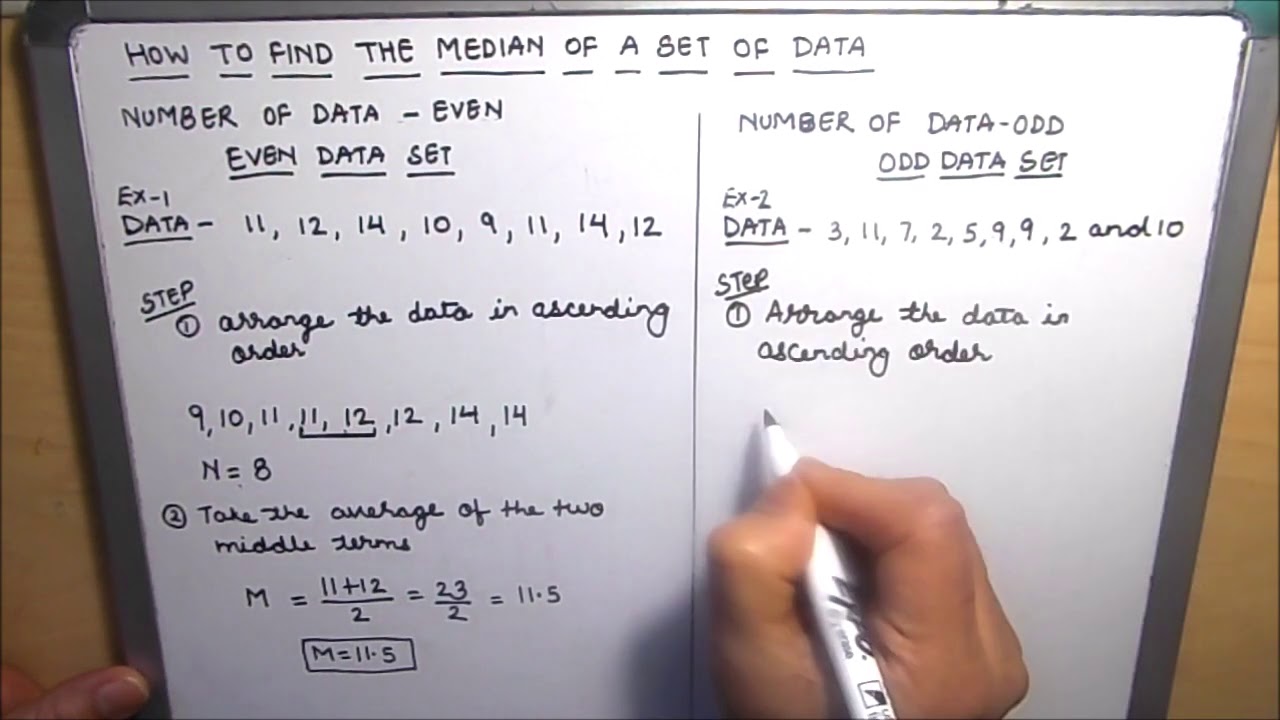 HOW TO FIND THE MEDIAN OF A SET OF DATA
NUMBER OF DATA – EVEN
EVEN DATA SET
EX-1
DATA – 11, 12, 14, 10, 9, 11, 14, 12
STEP
① arrange the data in ascending
order
9, 10, 11, 11, 12, 12, 14, 14
N = 8
② Take the average of the two
middle terms
M = 11+12/2 = 23/2 = 11.5
M = 11.5
NUMBER OF DATA-ODD
ODD DATA SET
EX-2
DATA – 3, 11, 7, 2, 5, 9, 9, 2 and 10
STEP
① Arrange the data in
ascending order